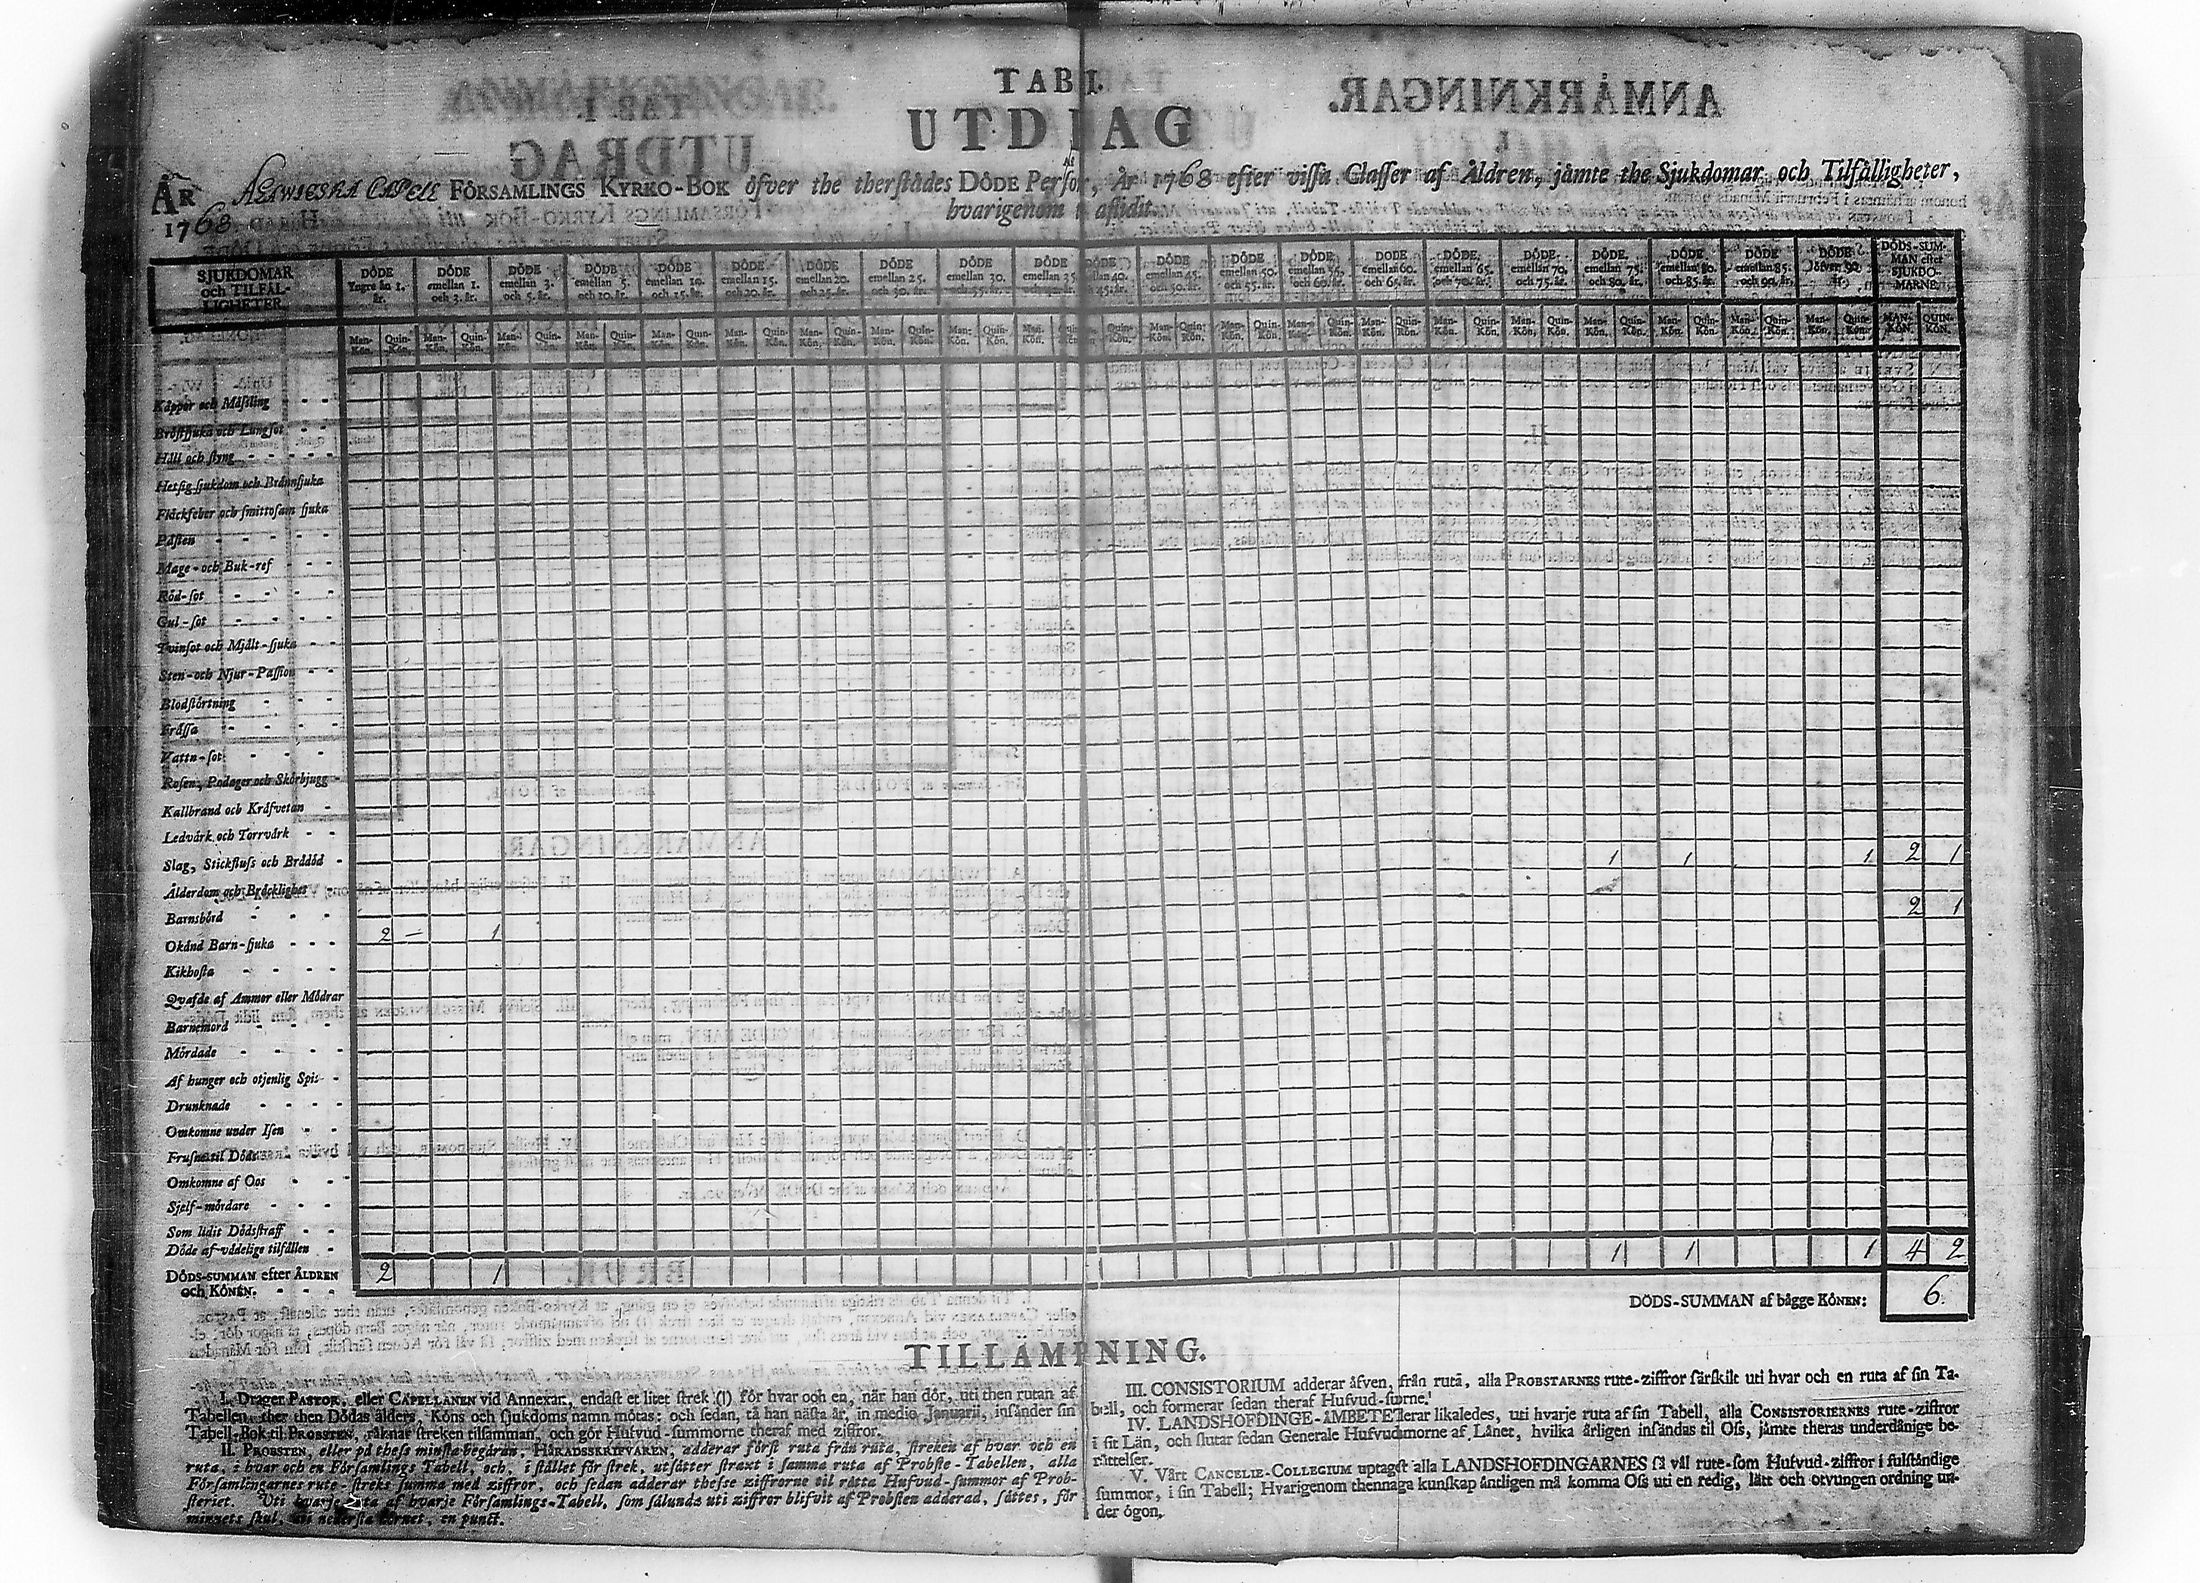 TAB I.
UTDRAG
År 1768
Försanlings Kyrko-Bok öfver the therstädes Döde Persor, År 1768 efter vissa Classer af Åldren, jämte the Sjukdomar och Tilfälligheter,
hvarigenom aflidit.
SJUKDOMAR och TILFÄLLIGHETER.
DÖDE Yngre än 1. år.
DÖDE emellan 1. och 3. år.
DÖDE emellan 3. och 5. år.
DÖDE emellan 5. och 10. år.
DÖDE emellan 10. och 15. år.
DÖDE emellan 15. och 20. år.
DÖDE emellan 20. och 25. år.
DÖDE emellan 25. och 30. år.
DÖDE emellan 30. och 35. år.
DÖDE emellan 35
40. 45. år.
DÖDE emellan 45. och 50. år.
DÖDE emellan 50. och 55. år.
DÖDE emellan 55. och 60. år.
DÖDE emellan 60. och 65. år.
DÖDE emellan 65. och 70. år.
DÖDE emellan 70. och 75. år.
DÖDE emellan 75. och 80. år.
DÖDE emellan 80. och 85. år.
DÖDE emellan 85. och 90. år.
DÖDE öfver 90 år.
DÖDS-SUMMAN efter SJUKDOMARNE.
Man-Kön. Quin-Kön.
Kåppor och Mäsling
Bröstsjuka och Lungsot
Håll och styng
Hetsig sjukdom och Brännsjuka
Fläckfeber och smittosam sjuka
Pästen
Mage- och Buk-ref
Röd-sot
Gul-sot
Tvinsot och Mjält-sjuka
Sten- och Njur-Passion
Blodstörtning
Fråssa
Vattn-sot
Rosen, Podager och Skörbjugg
Kallbrand och Kräfvetan
Ledvärk och Torrvärk
Slag, Stickfluss och Brådöd 1 1 1 2 1
Ålderdom och Bräcklighet
Barnsbörd 2 1
Okänd Barn-sjuka 2 — 1
Kikhosta
Qvafde af Ammor eller Mödrar
Barnemord
Mördade
Af hunger och otjenlig Spis
Drunknade
Omkomne under Isen
Frusne til Döds
Omkomne af Oos
Sjelf-mördare
Som lidit Dödsstraff
Döde af vådelige tilfällen
DÖDS-SUMMAN efter ÅLDREN och KÖNEN. 2 1 1 1 1 4 2
DÖDS-SUMMAN af bägge KÖNEN: 6.
TILLÄMPNING.
I. Drager PASTOR, eller CAPELLANEN vid Annexar, endast et litet strek (|) för hvar och en, när han dör, uti then rutan af
Tabellen, ther then Dödas ålders, Köns och sjukdoms namn mötas: och sedan, tå han nästa år, in medio Januarii, insänder sin
Tabell-Bok til PROBSTEN, räknar streken tilsamman, och gör Hufvud-summorne theraf med ziffror.
II. PROBSTEN, eller på thess minsta begäran, HÄRADSSKRIFVAREN, adderar först ruta från ruta, streken af hvar och en
ruta, i hvar och en Församlings Tabell, och, i stället för strek, utsätter straxt i samma ruta af Probste-Tabellen, alla
Församlingarnes rute-streks summa med ziffror, och sedan adderar thesse ziffrorne til rätta Hufvud-summor af Prob-
steriet. Uti hvarje ruta af hvarje Församlings-Tabell, som sålunda uti ziffror blifvit af Probsten adderad, sättes, för
minnets skul, uti nedersta hörnet, en punct.
III. CONSISTORIUM adderar äfven, från ruta, alla PROBSTARNES rute-ziffror särskilt uti hvar och en ruta af sin Ta-
bell, och formerar sedan theraf Hufvud-sumorne.
IV. LANDSHÖFDINGE-ÄMBETE lerar likaledes, uti hvarje ruta af sin Tabell, alla CONSISTORIERNES rute-ziffror
i sit Län, och slutar sedan Generale Hufvud morne af Länet, hvilka årligen insändas til Oss, jämte theras underdånige be-
rättelser.
V. Vårt CANCELIE-COLLEGIUM uptager alla LANDSHÖFDINGARNES så väl rute-som Hufvud-ziffror i fulständige
summor, i sin Tabell; Hvarigenom thennaga kunskap äntligen må komma Oss uti en redig, lätt och otvungen ordning un-
der ögon.